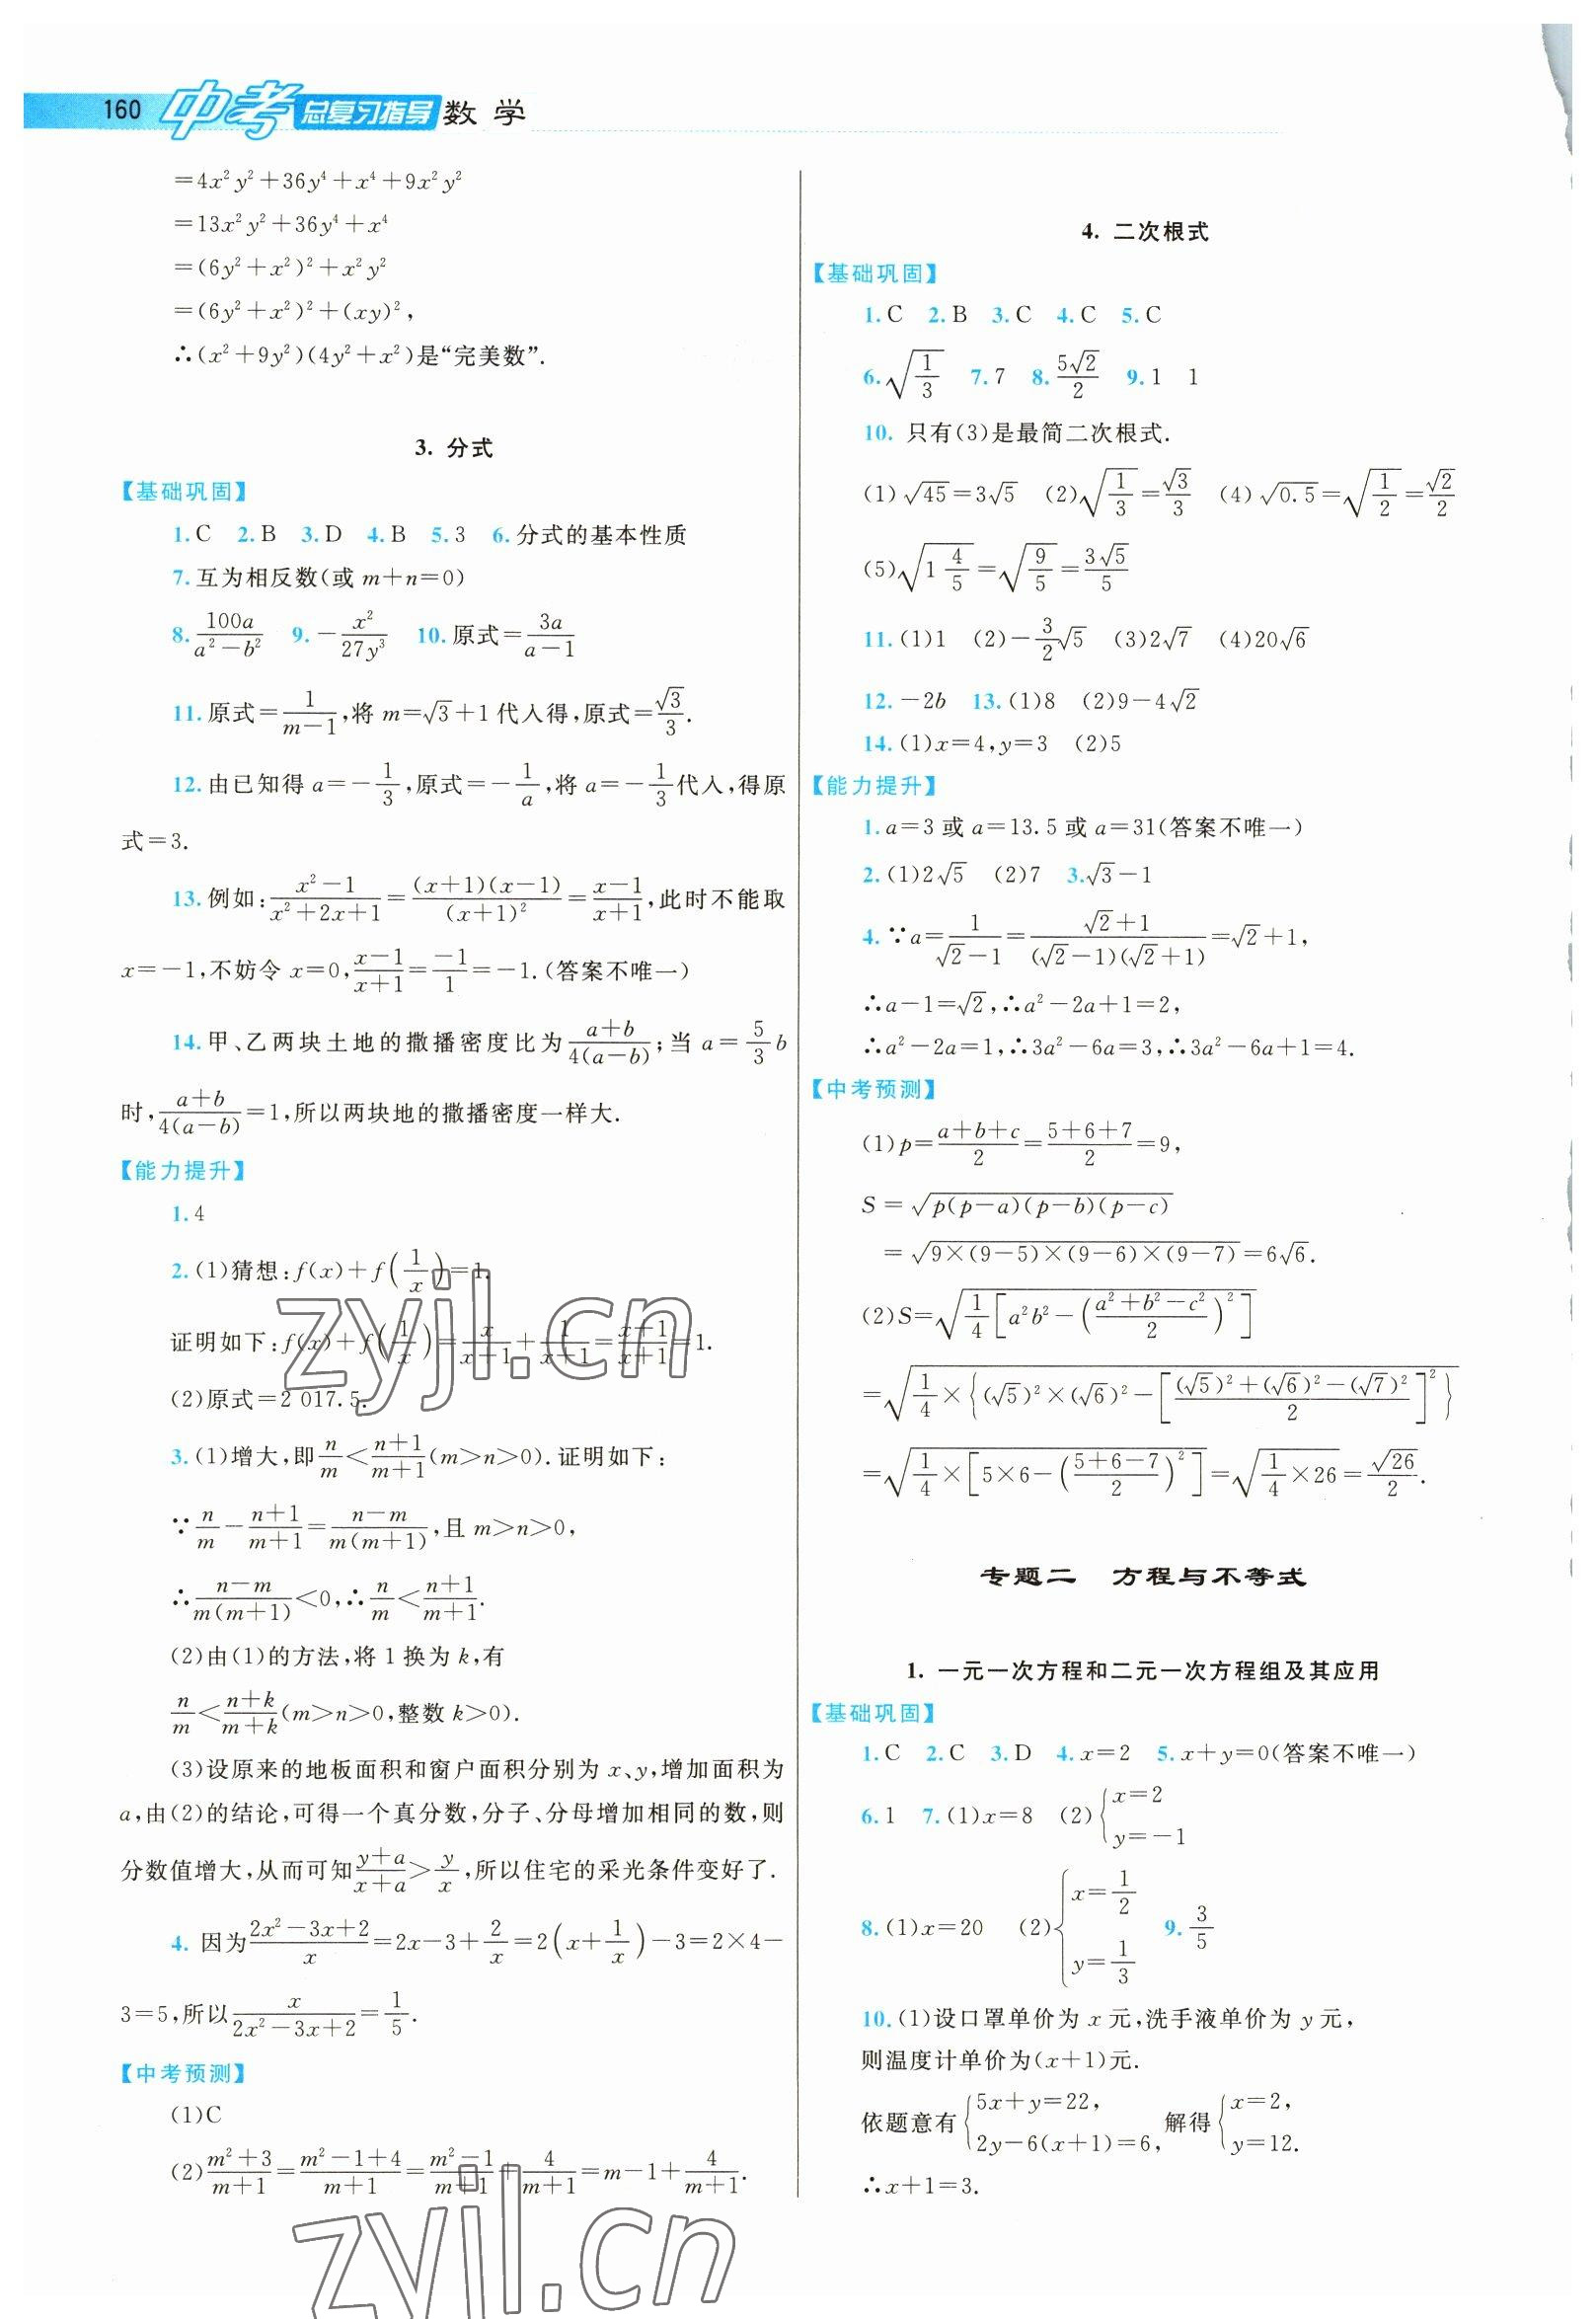 160 中考 总复习指导 数学
=4x²y²+36y⁴+x⁴+9x²y²
=13x²y²+36y⁴+x⁴
=(6y²+x²)²+x²y²
=(6y²+x²)²+(xy)²,
∴(x²+9y²)(4y²+x²)是“完美数”.
3. 分式
【基础巩固】
1.C 2.B 3.D 4.B 5.3 6.分式的基本性质
7.互为相反数(或 m+n=0)
8.100a/(a²-b²) 9.-x²/(27y³) 10.原式=3a/(a-1)
11.原式=1/(m-1),将 m=√3+1代入得,原式=√3/3.
12.由已知得 a=-1/3,原式=-1/a,将 a=-1/3代入,得原
式=3.
13.例如:(x²-1)/(x²+2x+1)=(x+1)(x-1)/(x+1)²=(x-1)/(x+1),此时不能取
x=-1,不妨令 x=0,(x-1)/(x+1)=-1/1=-1.(答案不唯一)
14.甲、乙两块土地的撒播密度比为(a+b)/4(a-b);当 a=5/3 b
时,(a+b)/4(a-b)=1,所以两块地的撒播密度一样大.
【能力提升】
1.4
2.(1)猜想:f(x)+f(1/x)=1.
证明如下:f(x)+f(1/x)=x/(x+1)+1/(x+1)=(x+1)/(x+1)=1.
(2)原式=2 017.5.
3.(1)增大,即n/m<(n+1)/(m+1)(m>n>0).证明如下:
∵n/m-(n+1)/(m+1)=(n-m)/m(m+1),且 m>n>0,
∴(n-m)/m(m+1)<0,∴n/m<(n+1)/(m+1).
(2)由(1)的方法,将 1 换为 k,有
n/m<(n+k)/(m+k)(m>n>0,整数 k>0).
(3)设原来的地板面积和窗户面积分别为 x、y,增加面积为
a,由(2)的结论,可得一个真分数,分子、分母增加相同的数,则
分数值增大,从而可知(y+a)/(x+a)>y/x,所以住宅的采光条件变好了.
4. 因为(2x²-3x+2)/x=2x-3+2/x=2(x+1/x)-3=2×4-
3=5,所以x/(2x²-3x+2)=1/5.
【中考预测】
(1)C
(2)(m²+3)/(m+1)=(m²-1+4)/(m+1)=(m²-1)/(m+1)+4/(m+1)=m-1+4/(m+1).
4. 二次根式
【基础巩固】
1.C 2.B 3.C 4.C 5.C
6.√(1/3) 7.7 8.5√2/2 9.1 1
10. 只有(3)是最简二次根式.
(1)√45=3√5 (2)√(1/3)=√3/3 (4)√0.5=√(1/2)=√2/2
(5)√(1 4/5)=√(9/5)=3√5/5
11.(1)1 (2)-3/2√5 (3)2√7 (4)20√6
12.-2b 13.(1)8 (2)9-4√2
14.(1)x=4,y=3 (2)5
【能力提升】
1.a=3 或 a=13.5 或 a=31(答案不唯一)
2.(1)2√5 (2)7 3.√3-1
4.∵a=1/(√2-1)=(√2+1)/(√2-1)(√2+1)=√2+1,
∴a-1=√2,∴a²-2a+1=2,
∴a²-2a=1,∴3a²-6a=3,∴3a²-6a+1=4.
【中考预测】
(1)p=(a+b+c)/2=(5+6+7)/2=9,
S=√(p(p-a)(p-b)(p-c))
=√(9×(9-5)×(9-6)×(9-7))=6√6.
(2)S=√(1/4[a²b²-((a²+b²-c²)/2)²])
=√(1/4×{(√5)²×(√6)²-[((√5)²+(√6)²-(√7)²)/2]²})
=√(1/4×[5×6-((5+6-7)/2)²])=√(1/4×26)=√26/2.
专题二 方程与不等式
1. 一元一次方程和二元一次方程组及其应用
【基础巩固】
1.C 2.C 3.D 4.x=2 5.x+y=0(答案不唯一)
6.1 7.(1)x=8 (2){x=2 y=-1
8.(1)x=20 (2){x=1/2 y=1/3 9.3/5
10.(1)设口罩单价为 x 元,洗手液单价为 y 元,
则温度计单价为(x+1)元.
依题意有{5x+y=22, 2y-6(x+1)=6, 解得{x=2, y=12.
∴x+1=3.
zyjl.cn
zyjl.cn